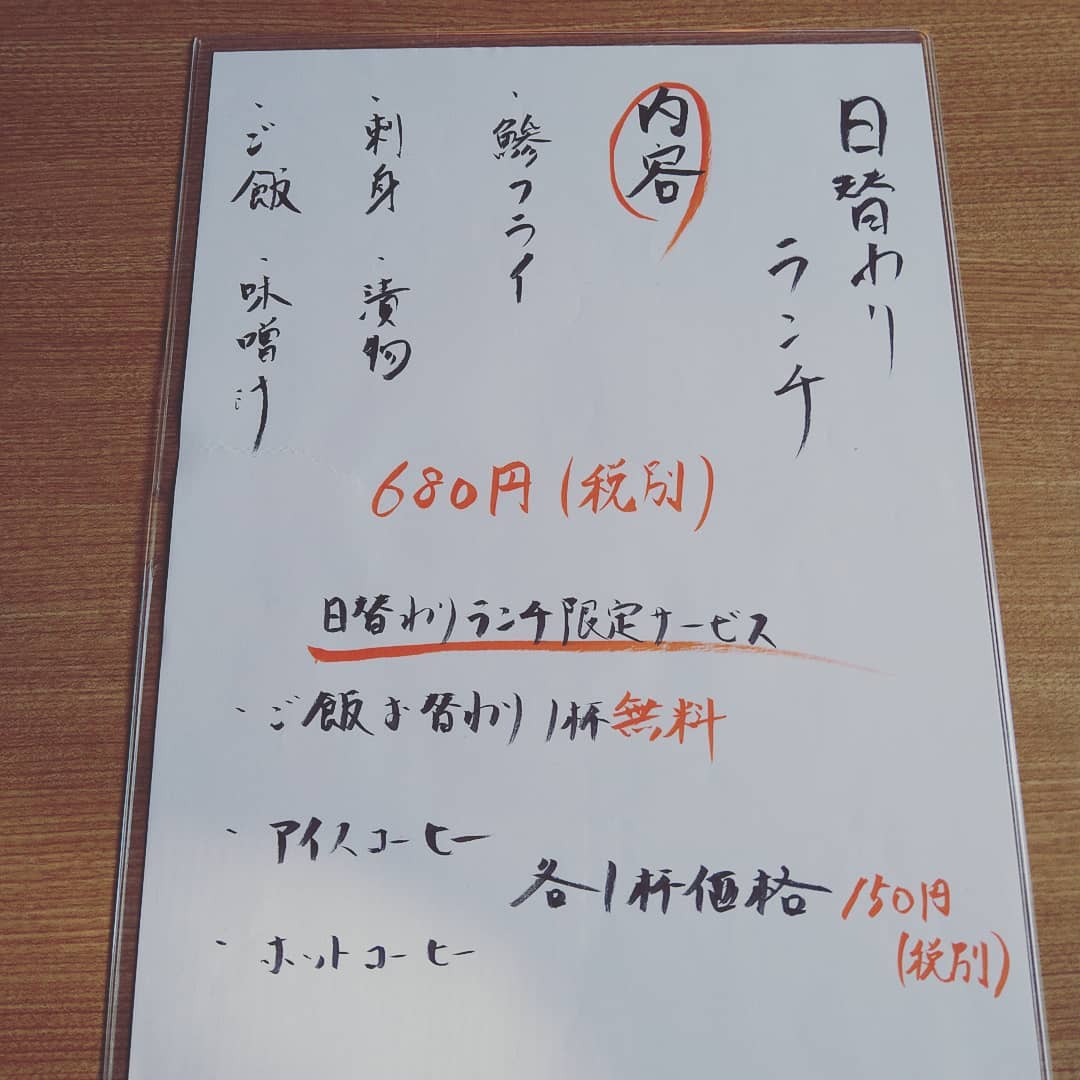 日替わり
ランチ
内容
・鰺フライ
・刺身 ・漬物
・ご飯 ・味噌汁
680円(税別)
日替わりランチ限定サービス
・ご飯お替わり1杯無料
・アイスコーヒー
・ホットコーヒー
各1杯価格150円
(税別)